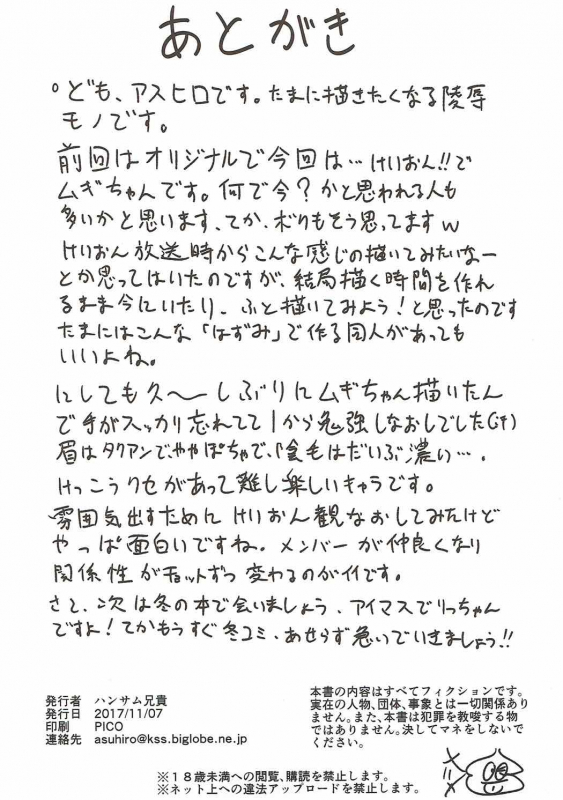 あとがき
°ども、アスヒロです。たまに描きたくなる陵辱
モノです。
前回はオリジナルで今回は…けいおん!!で
ムギちゃんです。何で今？かと思われる人も
多いかと思います、てか、ボクもそう思ってますw
けいおん放送時からこんな感じの描いてみたいなー
とか思ってはいたのですが、結局描く時間を作れ
るまま今にいたり、ふと描いてみよう！と思ったのです
たまにはこんな「はずみ」で作る同人があっても
いいよね。
にしても久〜しぶりにムギちゃん描いたん
で手がスッカリ忘れてて1から勉強しなおしでした(汗)
眉はタクアンでややぽちゃで、
けっこうクセがあって難し楽しいキャラです。
雰囲気出すためにけいおん観なおしてみたけど
やっぱ面白いですね。メンバーが仲良くなり
関係性がチョットずつ変わるのがイイです。
さて、次は冬の本で会いましょう、アイマスでりっちゃん
ですよ！てかもうすぐ冬コミ、あせらず急いでいきましょう!!
発行者 ハンサム兄貴
発行日 2017/11/07
印刷 PICO
連絡先 asuhiro@kss.biglobe.ne.jp
本書の内容はすべてフィクションです。
実在の人物、団体、事象とは一切関係あり
ません。また、本書は犯罪を教唆する物
ではありません。決してマネをしないで
ください。
※１８歳未満への閲覧、購読を禁止します。
※ネット上への違法アップロードを禁止します。